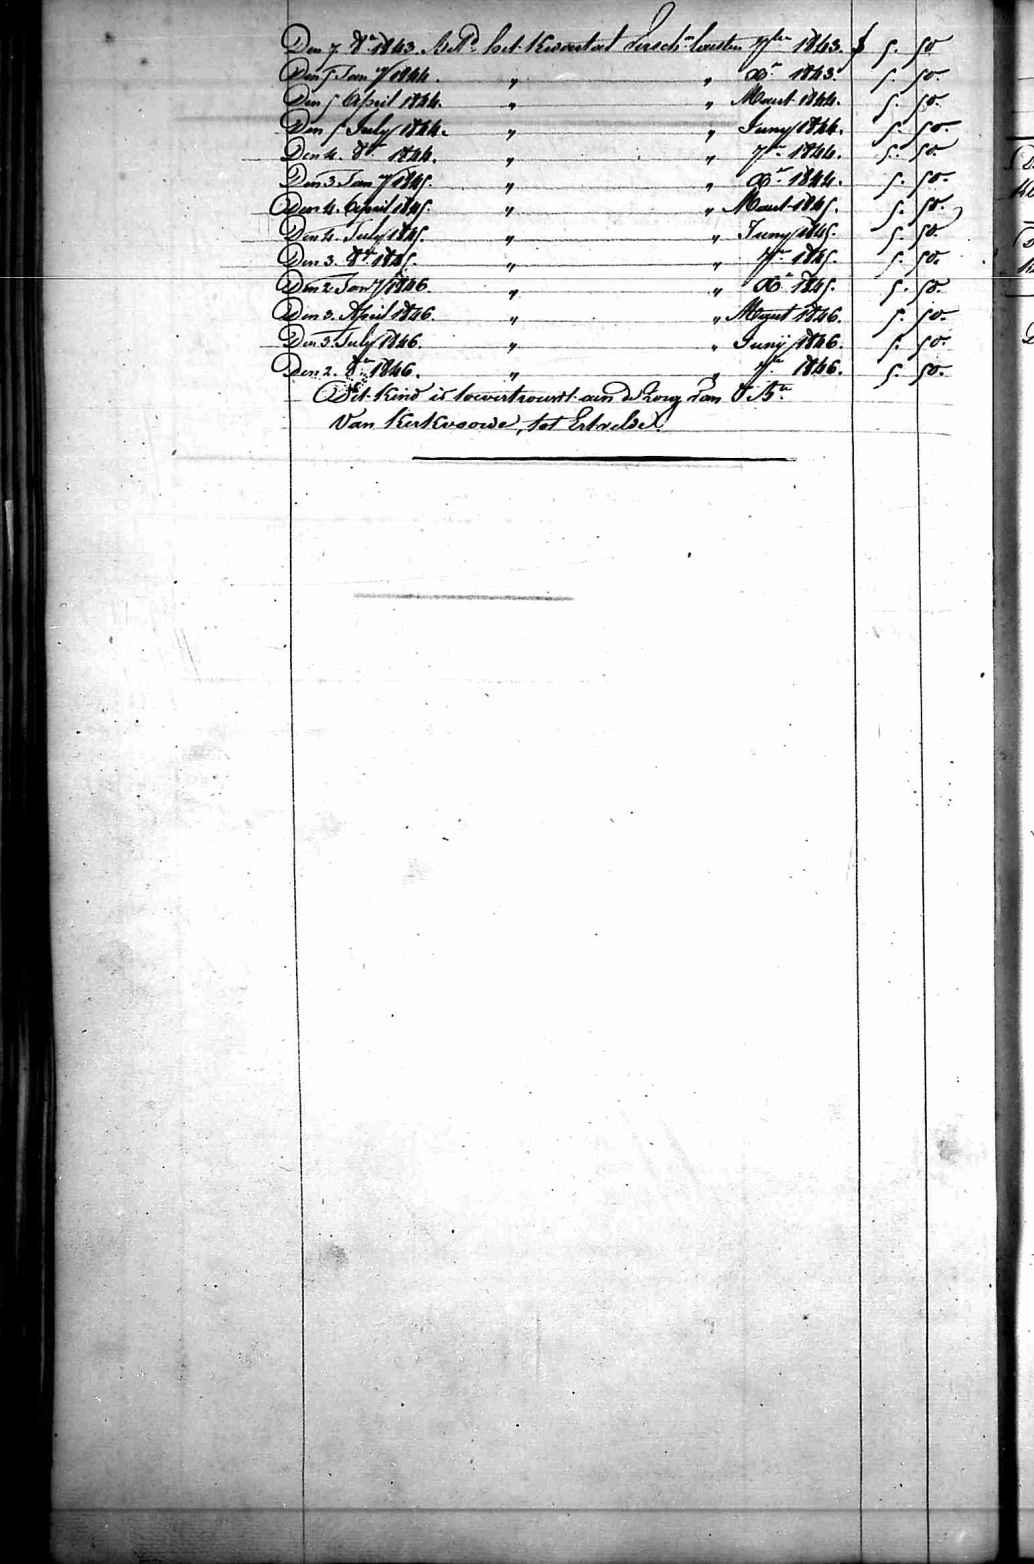 Den 7 8re 1843. Betd het Kwartaal versch: laasten 7ber 1843. f 5. 50
Den 5 Jany 1844. " " Xr 1843. 5. 50.
Den 5 April 1844. " " Maart 1844. 5. 50.
Den 5 July 1844. " " Juny 1844. 5. 50.
Den 4. 8r 1844. " " 7re 1844. 5. 50.
Den 3 Jany 1845. " " Xr 1844. 5. 50.
Den 4. April 1845. " " Maart 1845. 5. 50.
Den 4. July 1845. " " Juny 1845. 5. 50.
Den 3. 8re 1845. " " 7re 1845. 5. 50.
Den 2 Jany 1846. " " Xr 1845. 5. 50.
Den 3. April 1846. " " Maart 1846. 5. 50.
Den 3. July 1846. " " Junij 1846. 5. 50.
Den 2. 8re 1846. " " 7re 1846. 5. 50.
Dit Kind is toevertrouwt aan de zorg van
Van Kerkvoorde, tot Ertvelde.